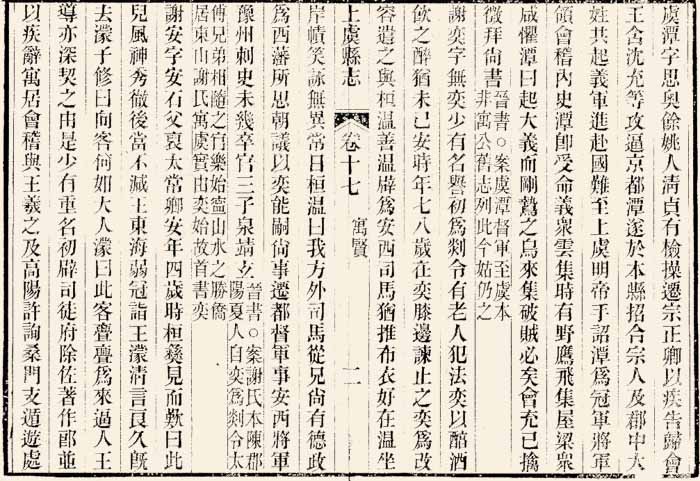 虞潭字思奧餘姚人淸貞有檢操遷宗正卿以疾告歸會
王含沈充等攻逼京都潭遂於本縣招合宗人及郡中大
姓共起義軍進赴國難至上虞明帝手詔潭爲冠軍將軍
領會稽內史潭卽受命義眾雲集時有野鷹飛集屋梁眾
咸懼潭曰起大義而剛鷙之鳥來集破賊必矣會充已擒
徵拜尙書晉書○案虞潭督軍至虞本
非寓公舊志列此今姑仍之
謝奕字無奕少有名譽初爲剡令有老人犯法奕以醇酒
飮之醉猶未已安時年七八歲在奕膝邊諫止之奕爲改
容遣之與桓温善温辟爲安西司馬猶推布衣好在温坐
上虞縣志
卷十七 寓賢
二
岸幘笑詠無異常日桓温曰我方外司馬從兄尙有德政
爲西藩所思朝議以奕能嗣尙事遷都督軍事安西將軍
豫州刺史未幾卒官三子泉靖玄晉書○案謝氏本陳郡
陽夏人自奕爲剡令太
傅兄弟相隨之官樂始寧山水之勝僑
居東山謝氏寓虞實由奕始故首書奕
謝安字安石父裒太常卿安年四歲時桓彝見而歎曰此
兒風神秀徹後當不減王東海弱冠詣王濛淸言良久旣
去濛子修曰向客何如大人濛曰此客亹亹爲來逼人王
導亦深契之由是少有重名初辟司徒府除佐著作郞並
以疾辭寓居會稽與王羲之及高陽許詢桑門支遁遊處